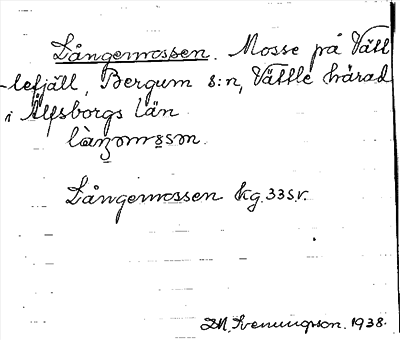 Långemossen. Mosse på Vätt
-lefjäll, Bergum s:n, Vättle härad
i Älfsborgs län

Långemossen kg. 33 S.v.
Svenungson. 1938.